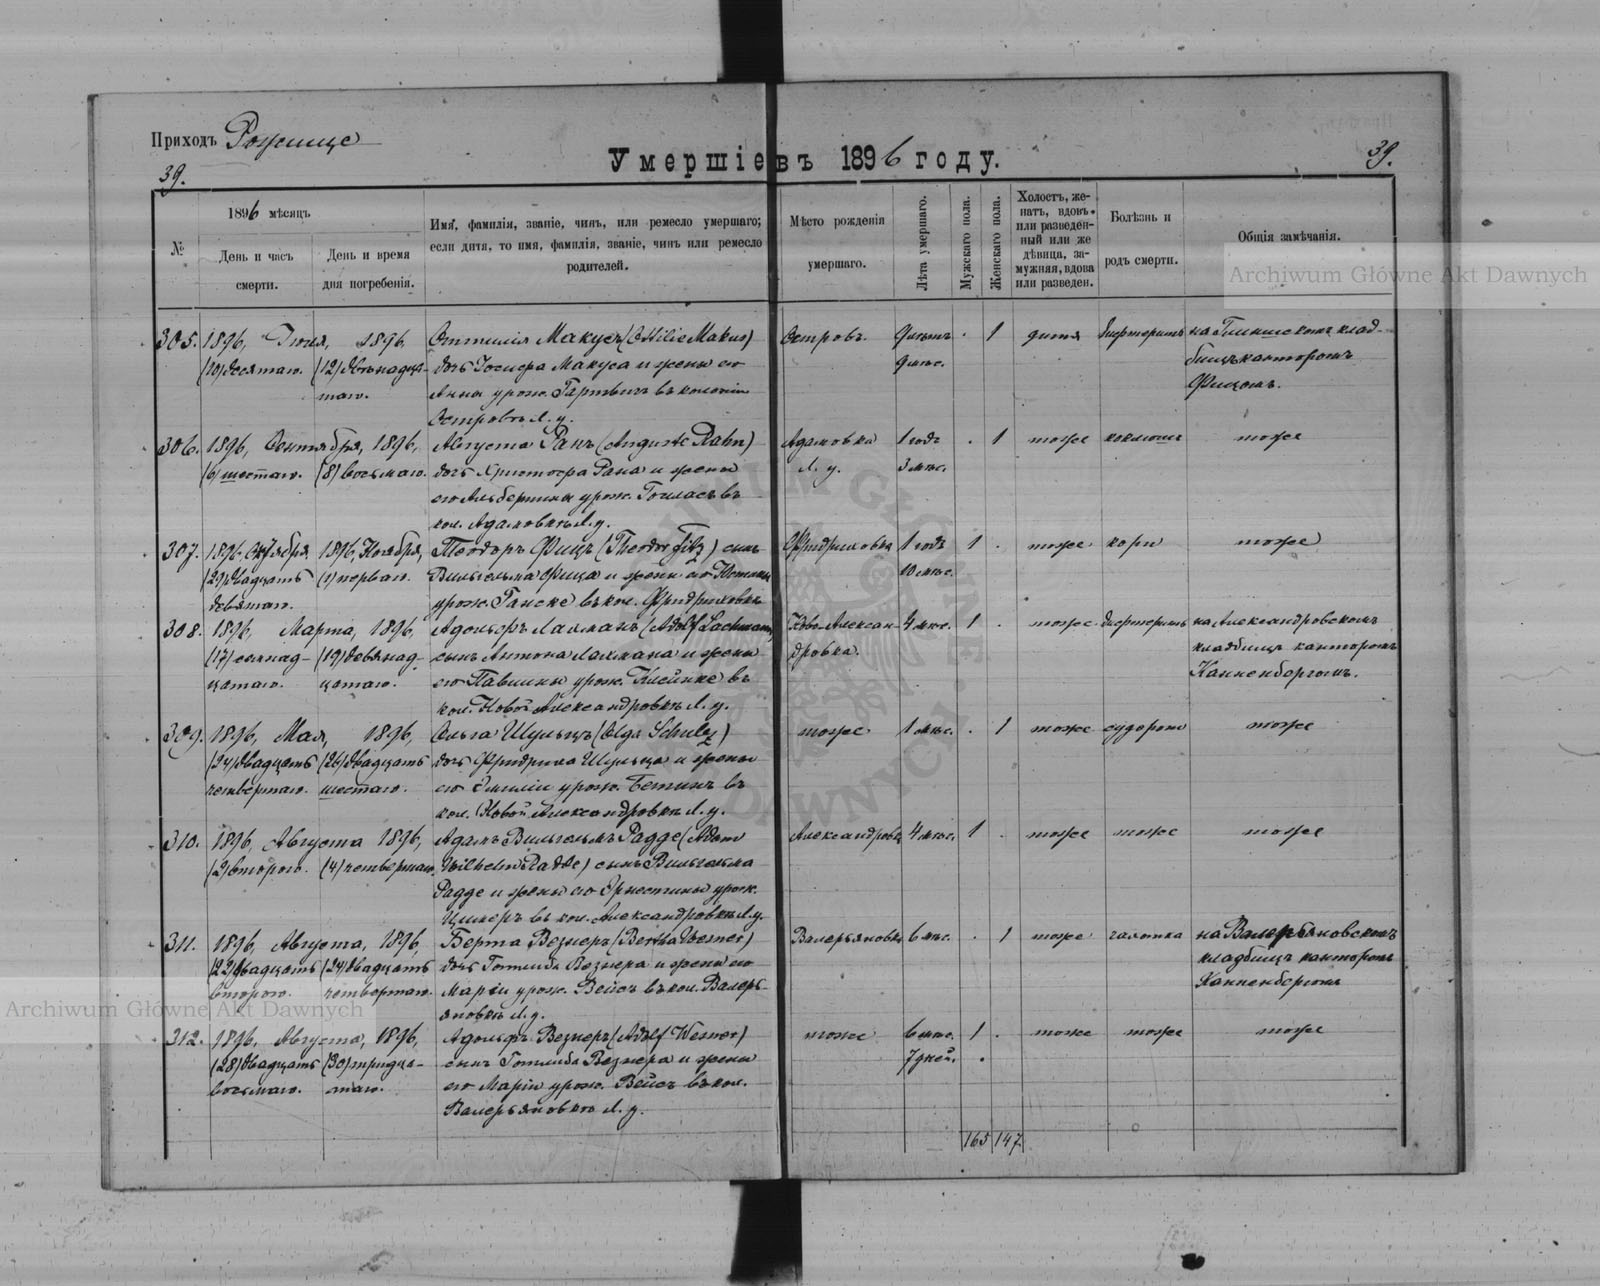 Приходъ Рожище
Умершіе въ 1896 году.
39.
39.
№
1896 мѣсяцъ
День и часъ смерти.
День и время дня погребенія.
Имя, фамилія, званіе, чинъ, или ремесло умершаго;
если дитя, то имя, фамилія, званіе, чинъ или ремесло
родителей.
Мѣсто рожденія
умершаго.
Лѣта умершаго.
Мужскаго пола.
Женскаго пола.
Холостъ, же-
натъ, вдовъ
или разведен-
ный или же
дѣвица, за-
мужняя, вдова
или разведен.
Болѣзнь и
родъ смерти.
Общія замѣчанія.
Archiwum Główne Akt Dawnych
305. 1896, Іюля, 1896, Оттилія Макусъ (Ottilie Makus) Островъ. 9 . 1 дитя дифтеритъ на клад-
(10) десятаго. (12) двѣнадца- дочь Іосифа Макуса и жены его 9 мѣс. бищѣ канторомъ
таго. Анны урож. Гартвигъ въ колоніи Фицомъ.
Островъ Л. у.
306. 1896, Сентября, 1896, Августа Ранъ (Auguste Rahn) Адамовка 1 годъ . 1 тоже коклюшъ тоже
(6) шестаго. (8) восьмаго. дочь Христофа Рана и жены Л. у. 3 мѣс.
его Альбертины урож. въ
кол. Адамовкѣ Л. у.
307. 1896, Октября 1896, Ноября, Теодоръ Фицъ (Theodor Fitz) сынъ Фридриховка 1 годъ 1 . тоже кори тоже
(29) двадцать (1) перваго. Вильгельма Фица и жены его Юстины 10 мѣс.
девятаго. урож. Ганске въ кол. Фридриховкѣ
308. 1896, Марта, 1896, Адольфъ Лахманъ (Adolf Lachmann) Ново Алексан- 4 мѣс. 1 . тоже дифтеритъ на Александровскомъ
(17) семнад- (19) девятнад- сынъ Антона Лахмана и жены дровка. кладбищѣ канторомъ
цатаго. цатаго. его Павлины урож. въ Канненбергомъ.
кол. Новой Александровкѣ Л. у.
309. 1896, Мая, 1896, Ольга Шульцъ (Olga Schulz) тоже 1 мѣс. . 1 тоже судороги тоже
(24) двадцать (26) двадцать дочь Фридриха Шульца и жены
четвертаго. шестаго. его Эмиліи урож. въ
кол. Новой Александровкѣ Л. у.
310. 1896, Августа 1896, Адамъ Вильгельмъ Радде (Adam Александровка 4 мѣс. 1 . тоже тоже тоже
(2) втораго. (4) четвертаго. Wilhelm Radde) сынъ Вильгельма
Радде и жены его Эрнестины урож.
въ кол. Александровкѣ Л. у.
311. 1896, Августа, 1896, Берта Везнеръ (Bertha Wesner) Валерьяновка 6 мѣс. . 1 тоже на Валерьяновскомъ
(22) двадцать (24) двадцать дочь Готлиба Везнера и жены его кладбищѣ канторомъ
втораго. четвертаго. Маріи урож. Вейсъ въ кол. Валерь- Канненбергомъ
яновкѣ Л. у.
Archiwum Główne Akt Dawnych
312. 1896, Августа, 1896, Адольфъ Везнеръ (Adolf Wesner) тоже 6 мѣс. 1 . тоже тоже тоже
(28) двадцать (30) тридца- сынъ Готлиба Везнера и жены 7 дней.
восьмаго. таго. его Маріи урож. Вейсъ въ кол.
Валерьяновкѣ Л. у.
165 147